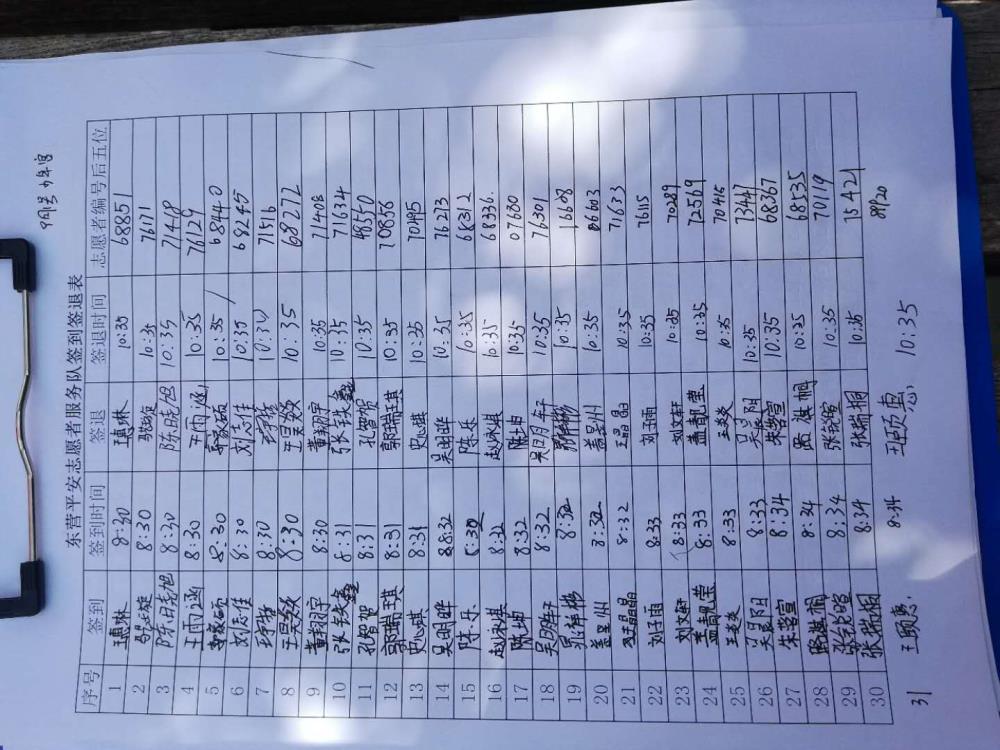 东营平安志愿者服务队签到签退表
序号 签到 签到时间 签退 签退时间 志愿者编号后五位
1 8:30 10:35 68851
2 8:30 10:35 76171
3 陈晓旭 8:30 陈晓旭 10:35 71448
4 王雨涵 8:30 王雨涵 10:35 76129
5 8:30 10:35 68440
6 刘志佳 8:30 刘志佳 10:35 68245
7 8:30 10:35 71516
8 8:30 10:35 68272
9 董翔宇 8:30 董翔宇 10:35 71408
10 张轶鑫 8:31 张轶鑫 10:35 71634
11 孔智贺 8:31 孔智贺 10:35 48550
12 郭瑞琪 8:31 郭瑞琪 10:35 70856
13 8:31 10:35 70495
14 吴明晔 8:32 吴明晔 10:35 76273
15 陈乐 8:32 陈乐 10:35 68312
16 赵冰祺 8:32 赵冰祺 10:35 68336
17 陈坤 8:32 陈坤 10:35 07680
18 8:32 10:35 76301
19 8:32 10:35 16608
20 盖昱州 8:32 盖昱州 10:35 06603
21 8:32 王晶晶 10:35 71633
22 刘子雨 8:33 刘子雨 10:35 76115
23 刘文轩 8:33 刘文轩 10:35 70289
24 盖靓莹 8:33 盖靓莹 10:35 72569
25 王焱 8:33 王焱 10:35 70415
26 吴昊阳 8:33 吴昊阳 10:35 73447
27 朱誉宣 8:34 朱誉宣 10:35 68367
28 8:34 10:35 68535
29 8:34 10:35 70119
30 张瑞桐 8:34 张瑞桐 10:35 15421
31 8:34 10:35 8920